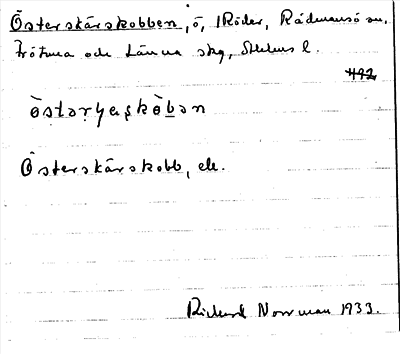 Österskärskobben, ö, i Röder, Rådmansö sn,
Frötuna och Länna skg, Sthlms l.
492
Österskärskobb, ek.
Rickard Norrman 1933.